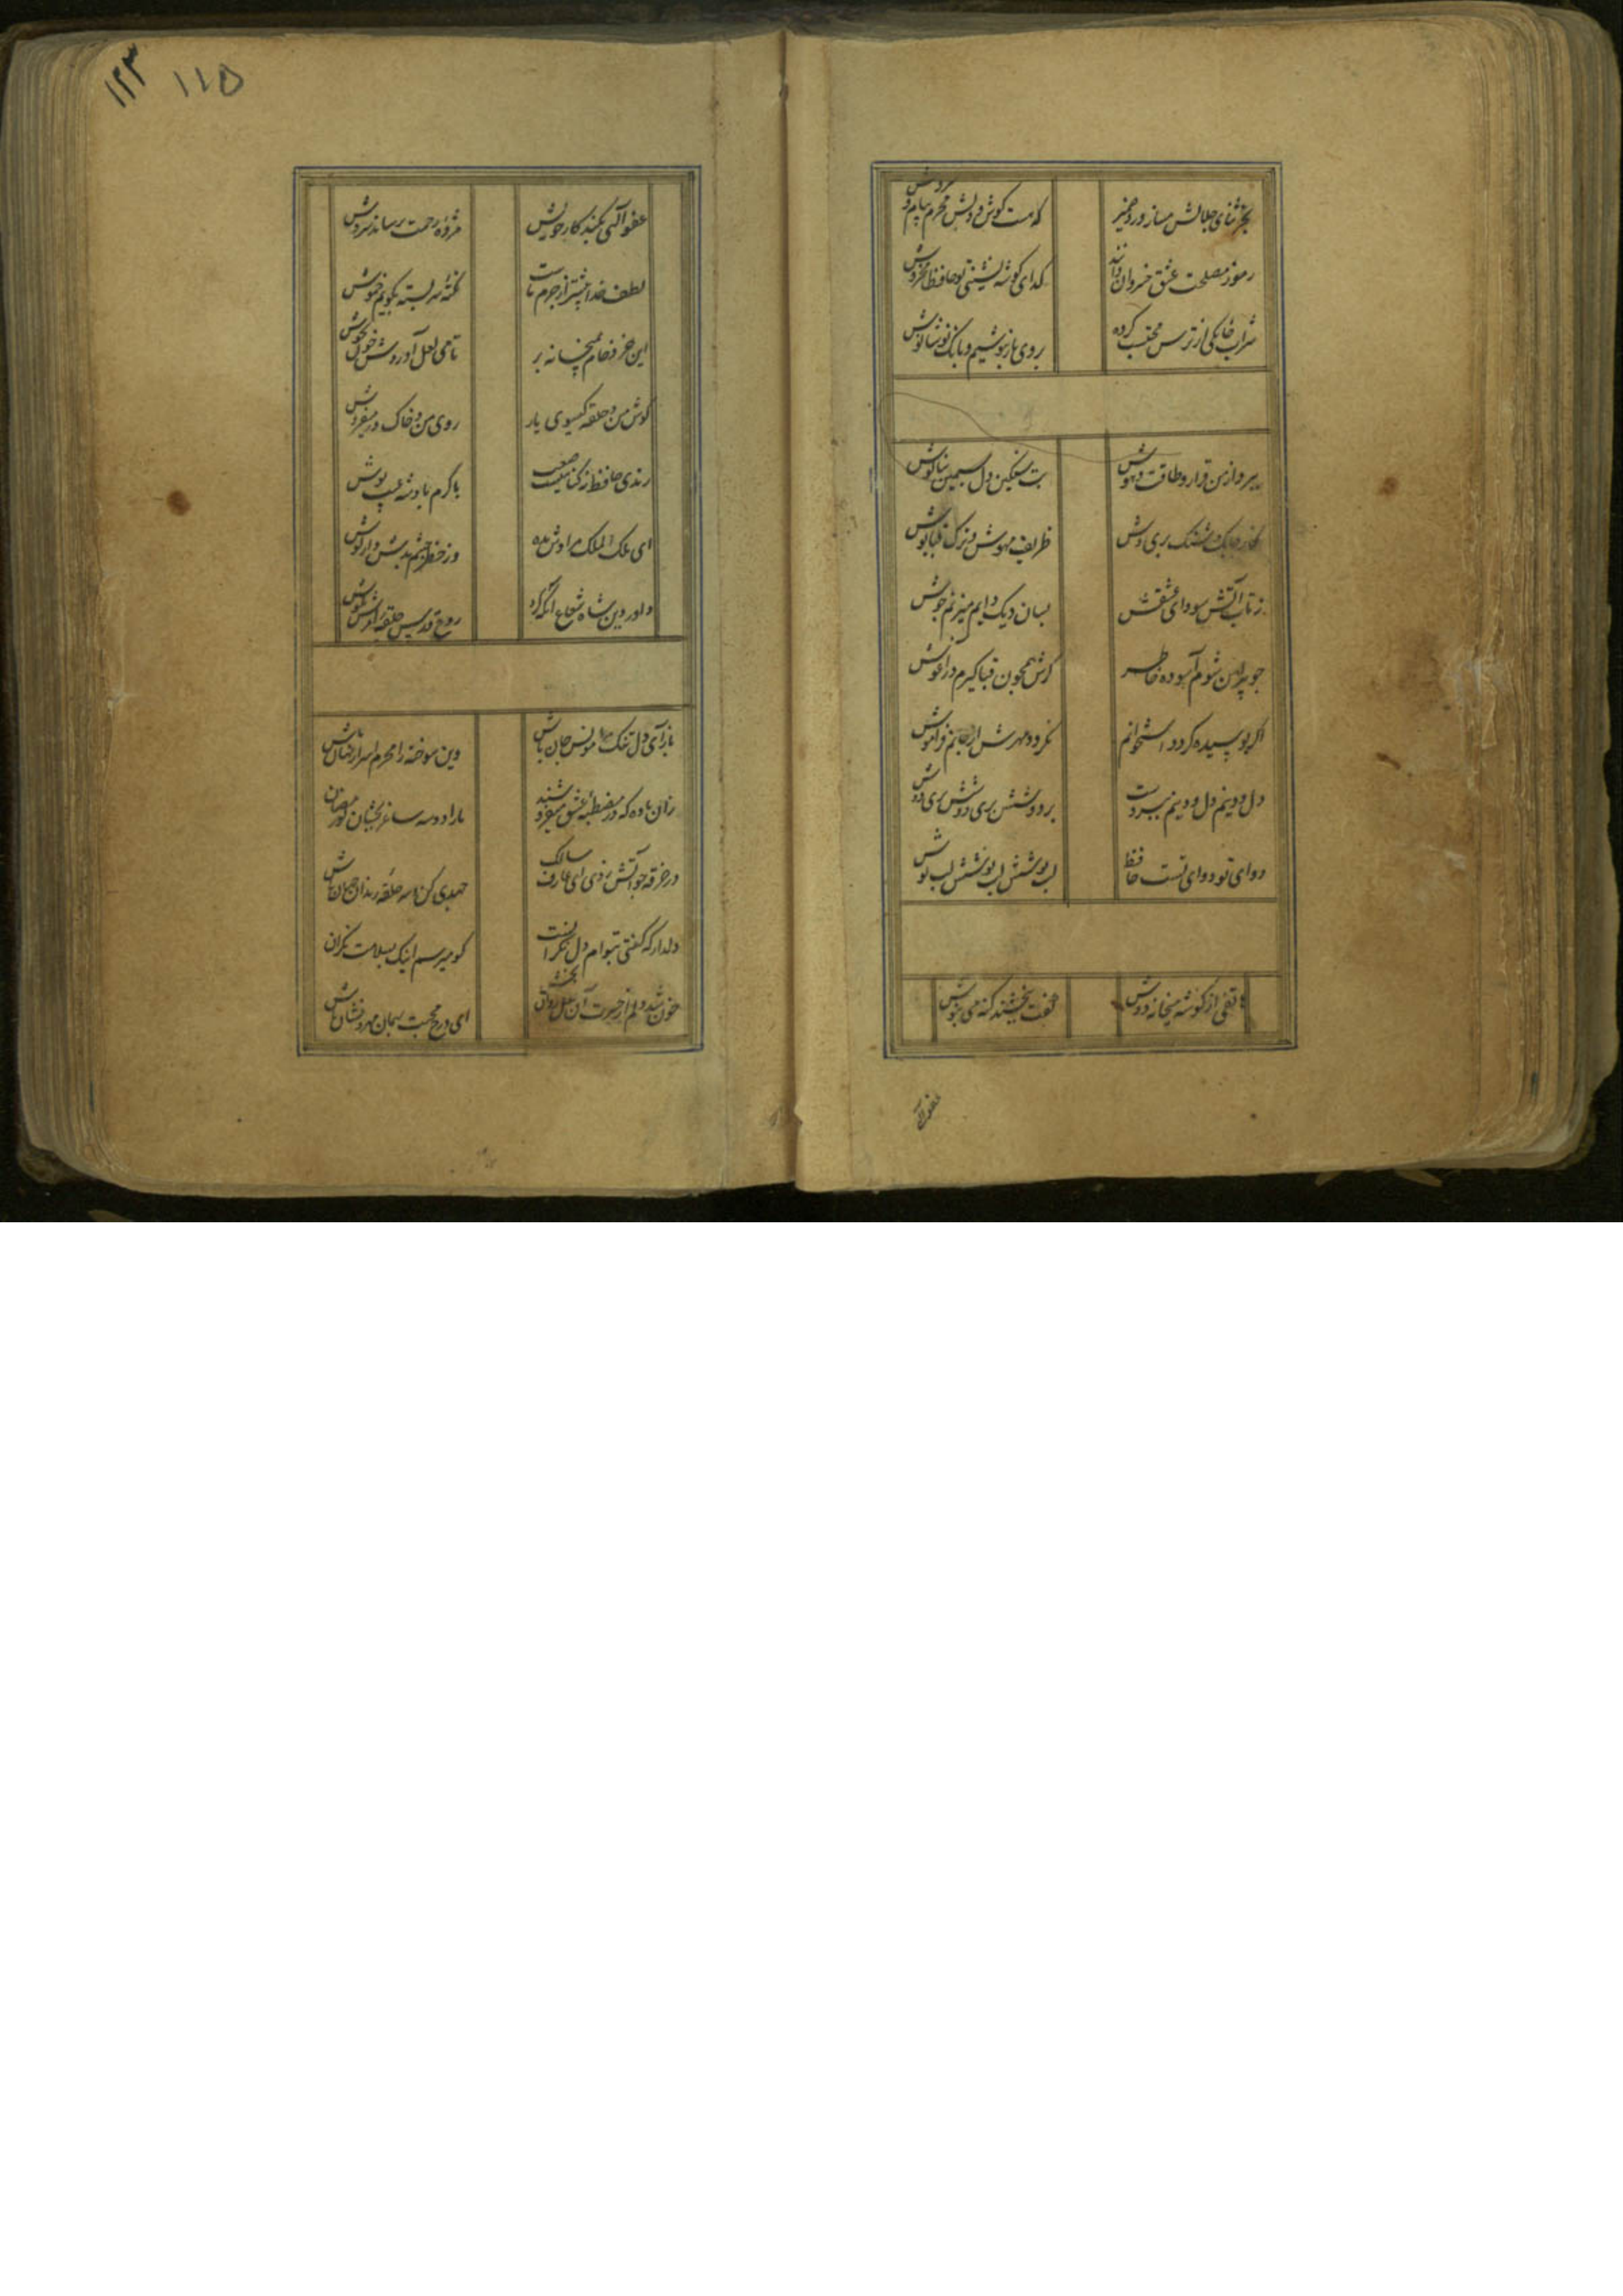 بجز ثنای جلالش مساز ورد ضمیر
که هست گوش دلش محرم پیام سروش
رموز مصلحت عشق خسروان دانند
گدای گوشه نشینی تو حافظا مخروش
شراب خانگی از ترس محتسب خورده
بروی یار بنوشیم و بانک نوشانوش
ببرد از من قرار و طاقت و هوش
بت سنگین دل سیمین بناگوش
نگار چابک شنگ پری وش
ظریف مهوش و ترک قباپوش
ز تاب آتش سودای عشقش
بسان دیک دایم میزنم جوش
چو پیراهن شوم آسوده خاطر
گرش همچون قبا گیرم در آغوش
اگر پوسیده گردد استخوانم
نگردد مهرش از جانم فراموش
دل و دینم دل و دینم ببردست
بر و دوشش بر و دوشش بر و دوش
دوای تو دوای تست حافظ
لب نوشش لب نوشش لب نوش
هاتفی از گوشه میخانه دوش
گفت ببخشند گنه می بنوش
عفو الهی
۱۲۳ ۱۱۵
عفو الهی بکند کار خویش
مژده رحمت برساند سروش
لطف خدا بیشتر از جرم ماست
نکته سربسته بگویم خموش
این خرد خام بمیخانه بر
تا می لعل آوردش خون بجوش
گوش من و حلقه گیسوی یار
روی من و خاک در میفروش
رندی حافظ نه گناهیست صعب
با کرم پادشه عیب پوش
ای ملک الملک مرادش بده
وز خطر چشم بدش دار گوش
داور دین شاه شجاع آنکه کرد
روح قدس حلقه امرش بگوش
باز آی و دل تنک مرا مونس جان باش
وین سوخته را محرم اسرار نهان باش
زان باده که در مصطبه عشق فروشند
ما را دو سه ساغر بچشان کو رمضان
در خرقه چو آتش زدی ای عارف سالک
جهدی کن و سر حلقه رندان جهان باش
دلدار که گفتی بتوام دل نگرانست
کو میرسم اینک بسلامت نگران
خون شد دلم از حسرت آن لعل روان بخش
ای درج محبت بهمان مهر و نشان باش